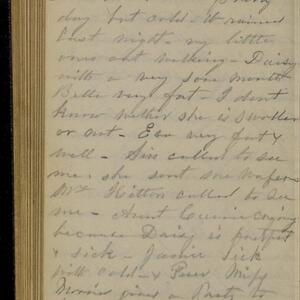 day but cold - It rained
last night - my little
ones out walking - Daisy
with a very sore mouth
Belle very fat - I don't
know whether she is swollen
or not - Eva very fat &
well - Miss called to see
me, she sent some wafers
Mrs Hitton called to see
me - Aunt crying
because Daisy is
& sick - Jackie sick
with cold - & Miss
gives a to